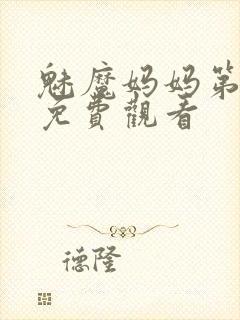 魅魔妈妈第
免費觀看
德隆